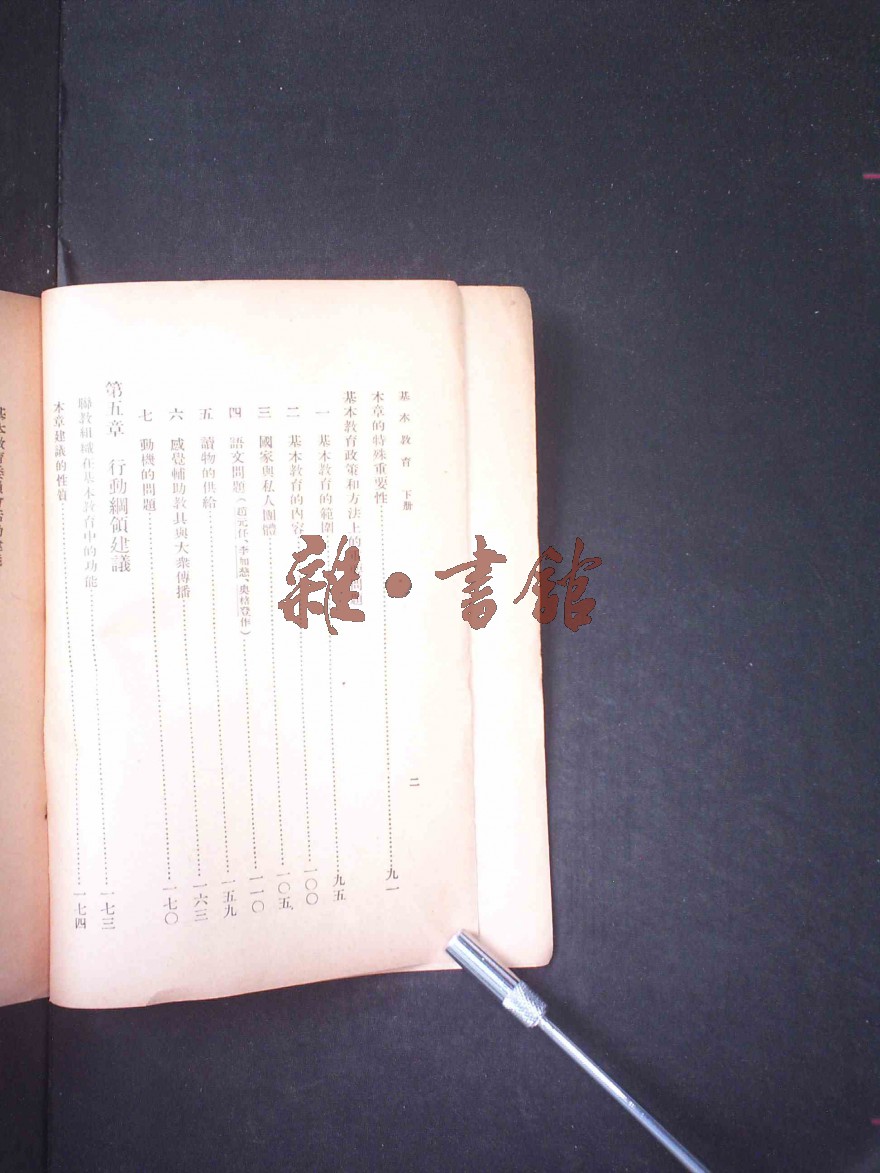 基本教育 下册 二
本章的特殊重要性……九一
基本教育政策和方法上的
一 基本教育的範圍……九五
二 基本教育的內容……一〇〇
三 國家與私人團體……一〇五
四 語文問題(趙元任、李加瑟、奧格登作)……一一〇
五 讀物的供給……一五九
六 感覺輔助教具與大衆傳播……一六三
七 動機的問題……一七〇
第五章 行動綱領建議
聯教組織在基本教育中的功能……一七三
本章建議的性質……一七四
基本教育
雜·書館